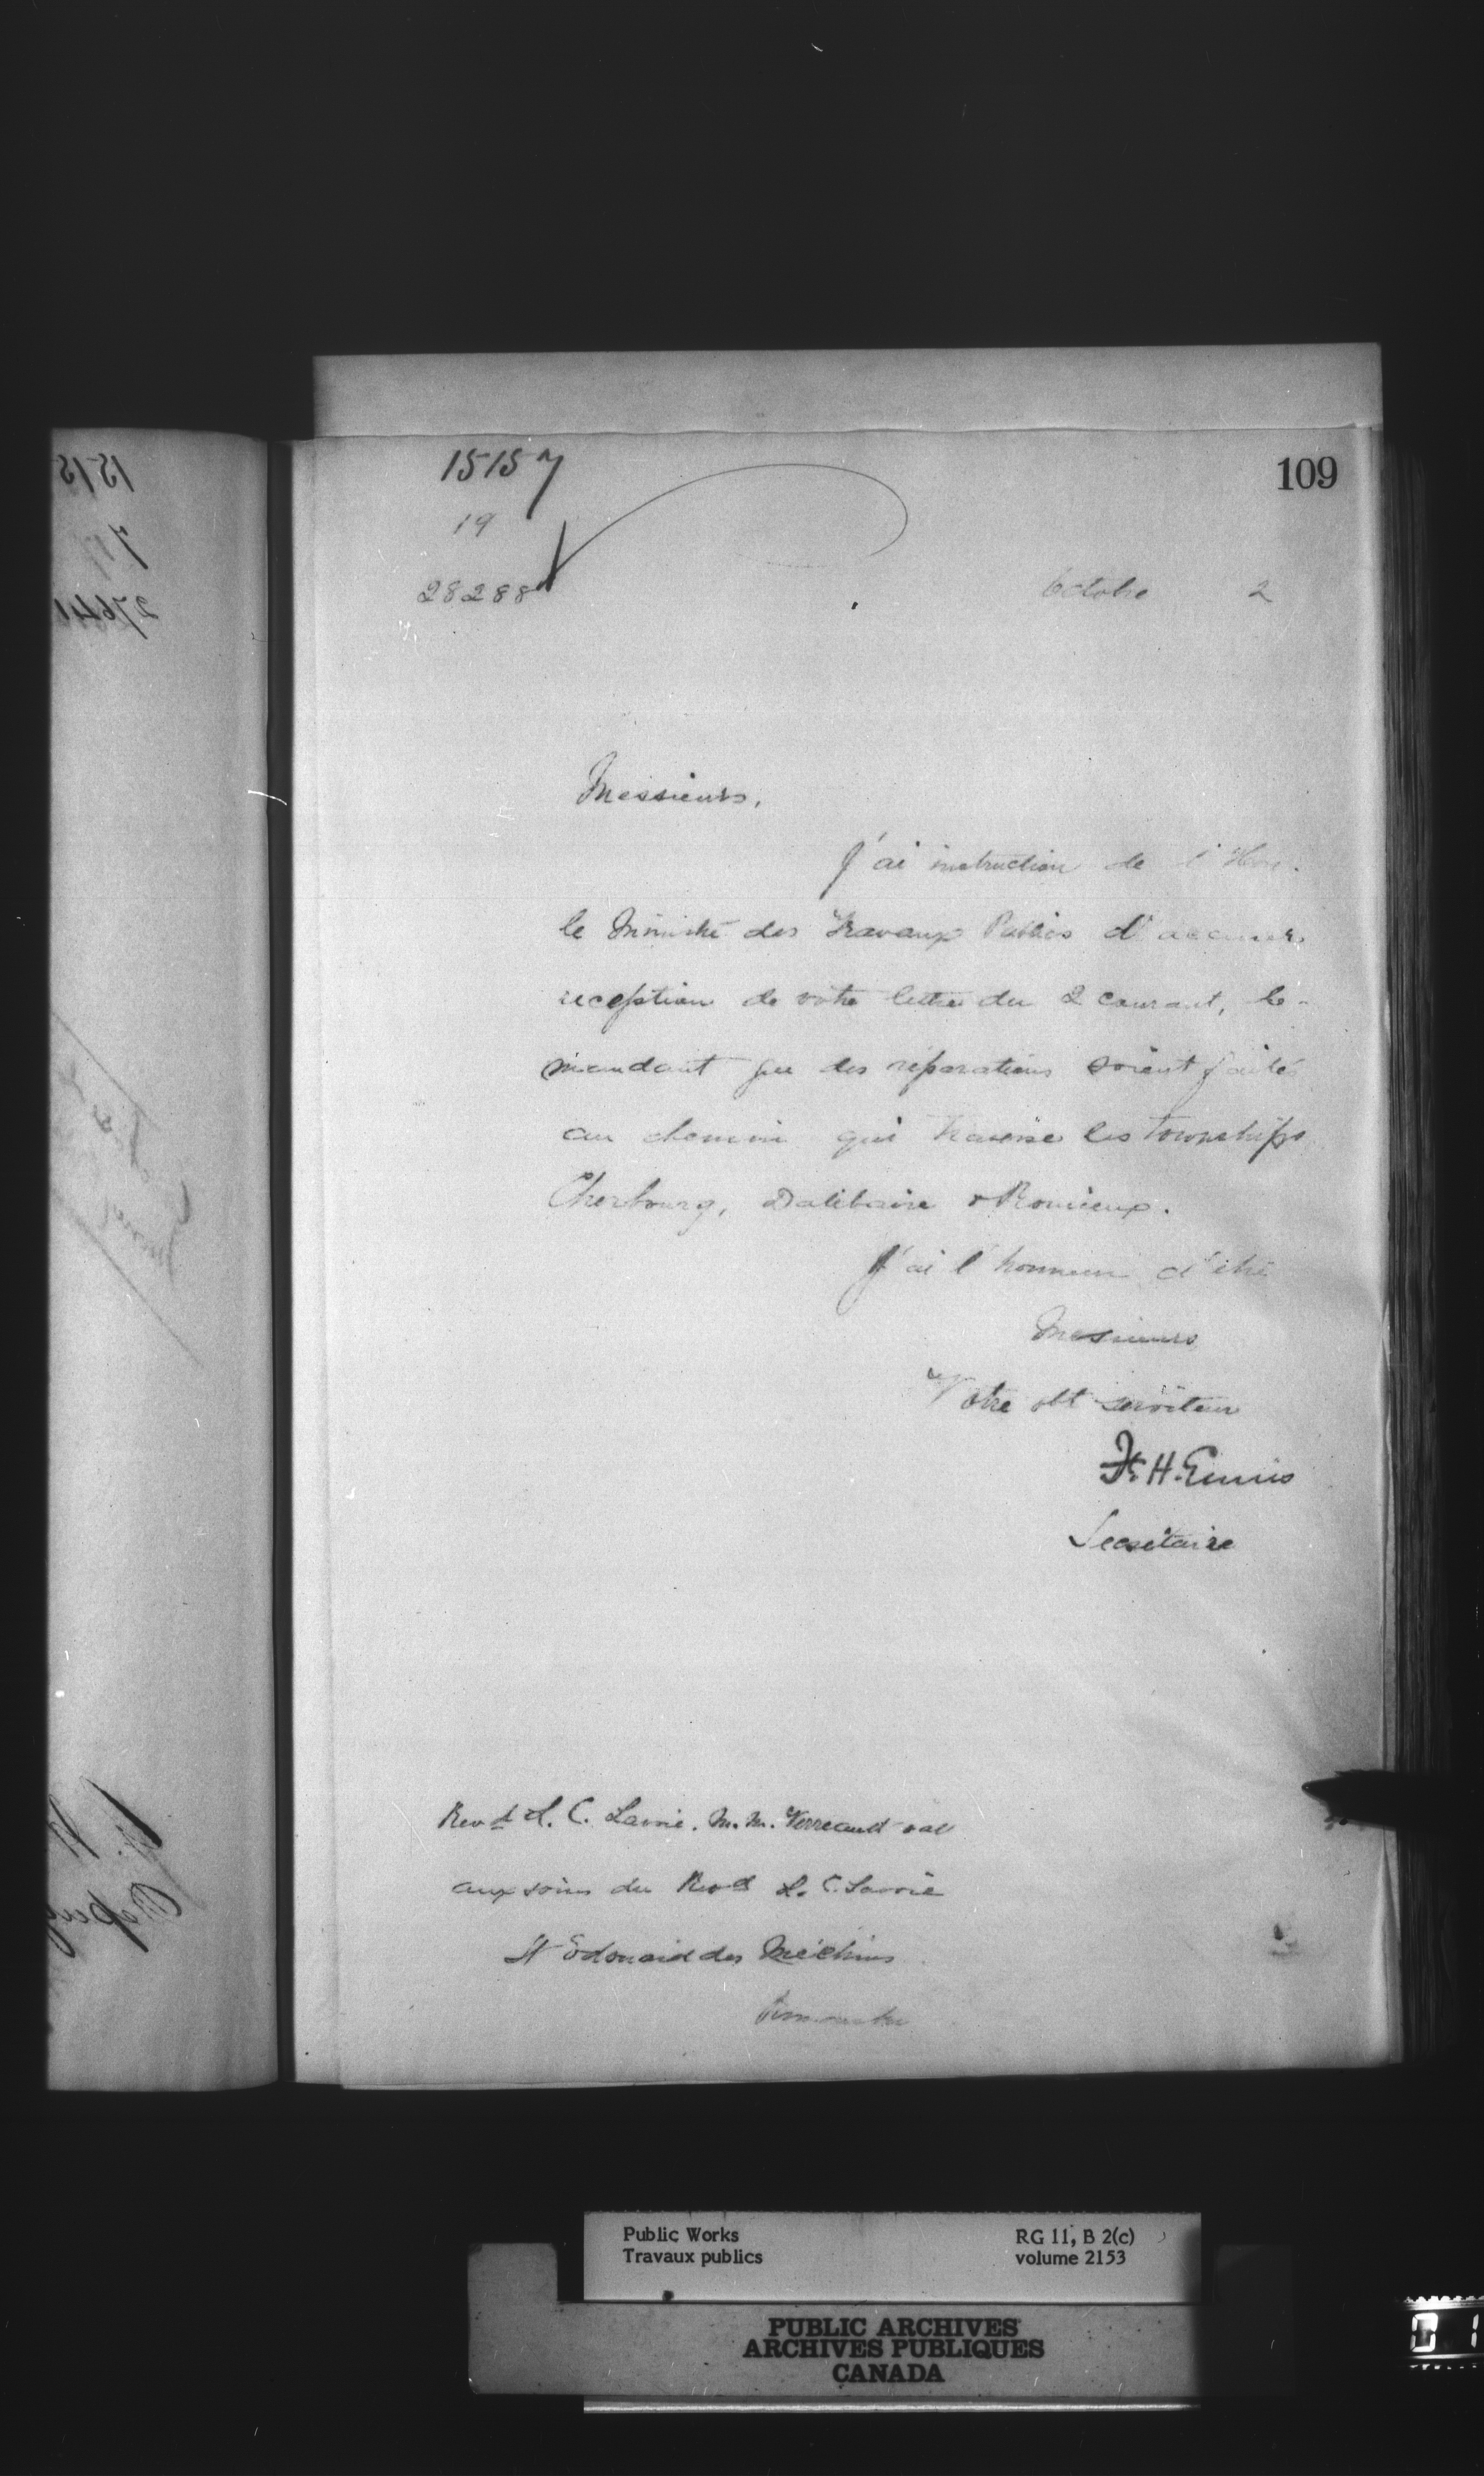 15157
109
19
28288
Octobre 2
Messieurs,
J'ai instruction de l'Hon.
le Ministre des Travaux Publics d'accuser
reception de votre lettre du 2 courant, de-
mandant que des réparations soient faites
au chemin qui traverse les townships
Cherbourg, Dalibaire & Romieux.
J'ai l'honneur d'être
Messieurs
Votre obt serviteur
F. H. Ennis
Secrétaire
Revd L. C. Lavoie. M. M. Verreault & al
aux soins du Revd L. C. Lavoie
St Edouard des Méchins
Rimouski
Public Works
Travaux publics
RG 11, B 2(c)
volume 2153
PUBLIC ARCHIVES
ARCHIVES PUBLIQUES
CANADA